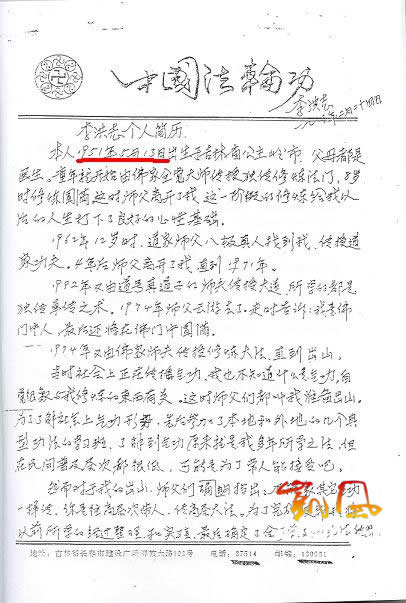 中国法轮功
李洪志
李洪志个人简历
本人1951年5月13日出生于吉林省公主岭市，父母都是
医生。童年就开始由佛家全觉大师传授独传修炼法门，8岁
时修炼圆满，这时师父离开了我，这一阶段的修炼给我以
后的人生打下了良好的心性基础。
1962年12岁时，道家师父八极真人找到我，传授道
家功夫。4年后师父离开了我，直到1971年。
1972年又由道号真道子的师父传授大道，所学的都是
独传单传之术。1974年师父云游去了。走时告诉：我是佛
门中人，最后还将在佛门中圆满。
1974年又由佛教师父传授修炼大法，直到出山。
当时社会上正在传播气功，我也不知道什么是气功，自
我修炼的东西有关。这时师父们都叫我准备出山。
为了了解社会上气功形势，先后参加了本地和外地的几个典
型功法的学习班，了解到气功原来就是我多年所学之法，但
在民间普及层次都很低，可能是为了常人能接受吧。
然而对于我的出山，师父们明确指出，
一样传，你是往高层次带人，传高层大法。为了完
以前所学的经过整理和实践，最后确定了
地址：吉林省长春市建设广场解放大路103号 电话：37514 邮编：130061